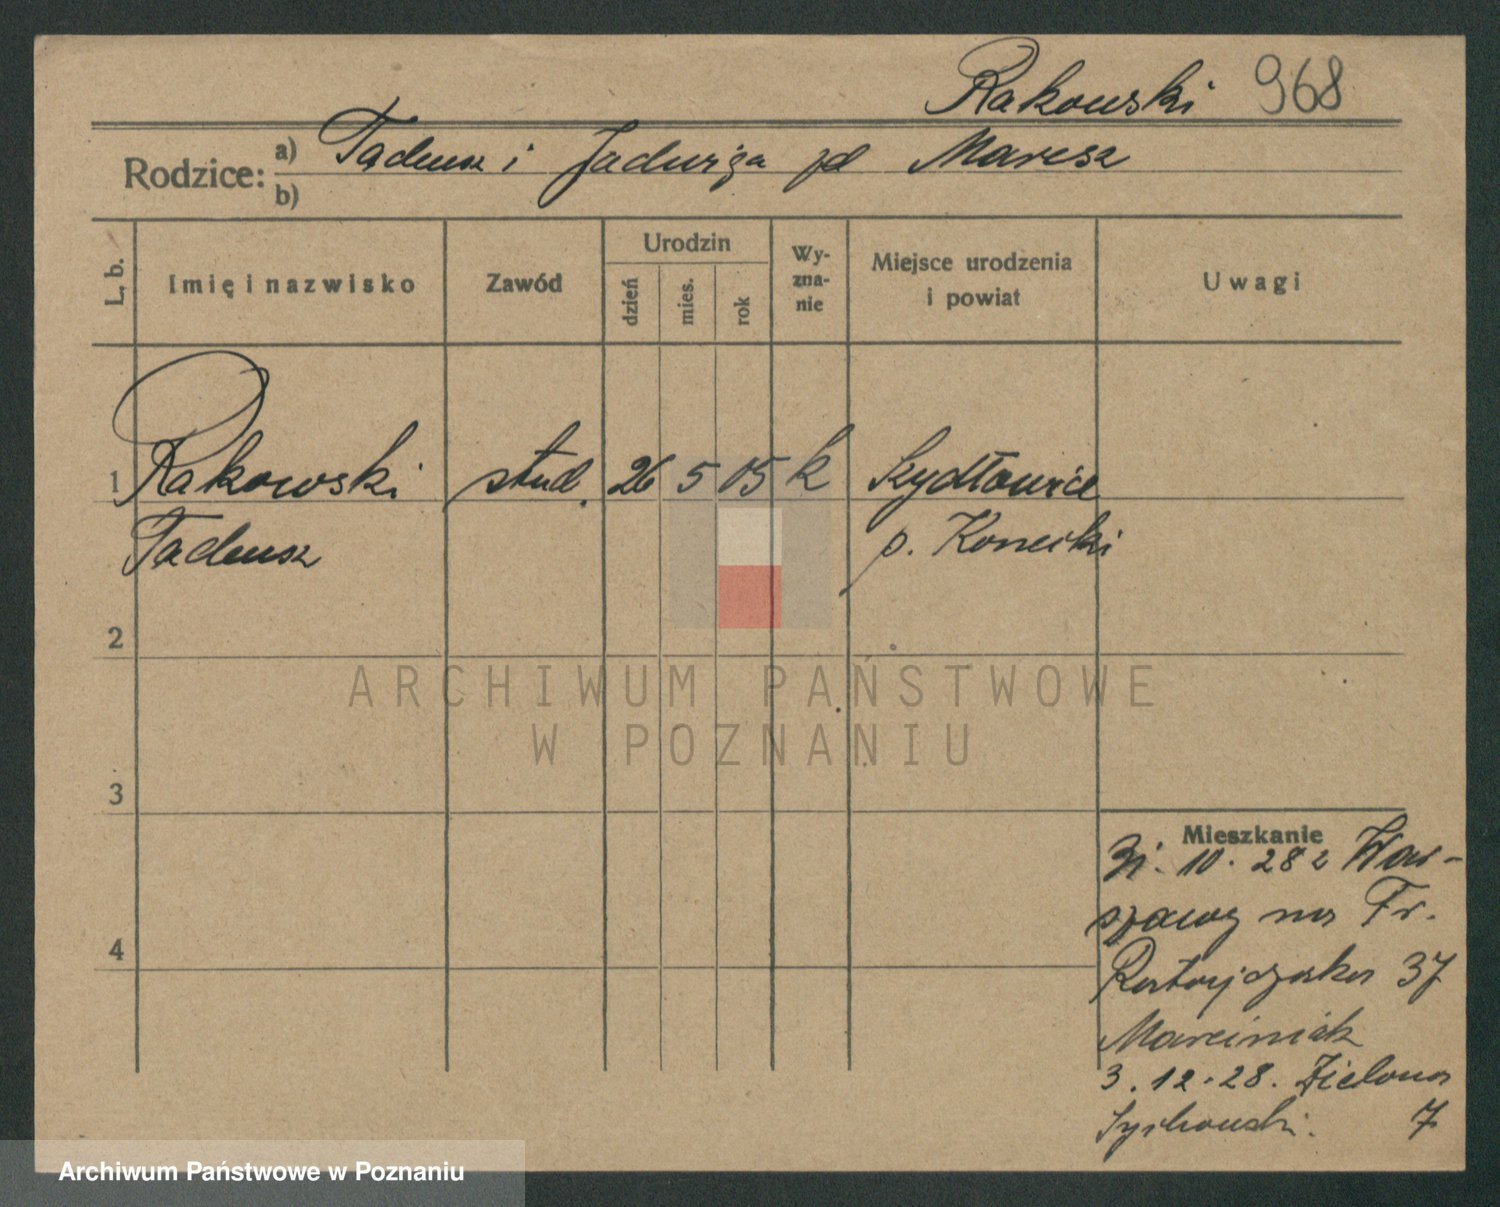 Rakowski 968
Rodzice: a) Tadeusz i Jadwiga zd Maresz
b)
L. b.
Imię i nazwisko
Zawód
Urodzin
dzień
mies.
rok
Wy-
zna-
nie
Miejsce urodzenia
i powiat
Uwagi
1 Rakowski stud. 26 5 05 k Szydłowice
Tadeusz p. Konecki
2
ARCHIWUM PAŃSTWOWE
W POZNANIU
3
Mieszkanie
31. 10. 28 z War-
szawy na Fr.
Ratajczaka 37
Marciniak
3. 12. 28. Zielona
7
4
Archiwum Państwowe w Poznaniu